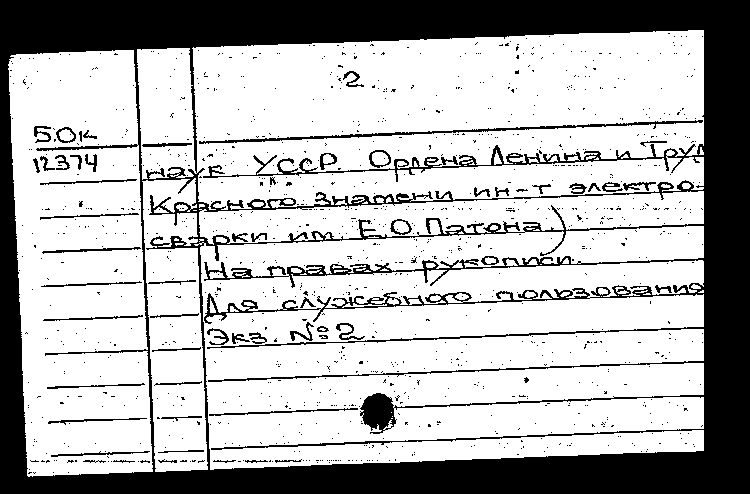 2
5.Ок
12374
наук УССР. Ордена Ленина и Труд
Красного Знамени ин-т электро-
сварки им. Е.О.Патона.)
На правах рукописи.
Для служебного пользования
Экз. №2.